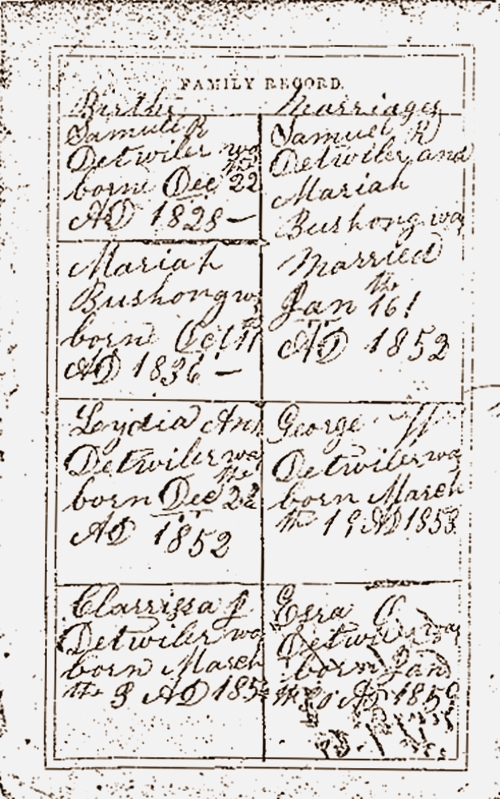 FAMILY RECORD.
Births
Samuel R
Detwiler was
born Dec 22
AD 1828 —
Mariah
Bushong was
born Oct 11
AD 1836 —
Loydia Ann
Detwiler was
the
born Dec 22
AD 1852
Clarrissa J
Detwiler was
born March
the 3 AD 185
Marriages
Samuel R
Detwiler and
Mariah
Bushong was
Married
the
Jan 16
AD 1852
George W
Detwiler was
born March
th 19 AD 1853
Esra
Detwiler was
born Jan
AD 185